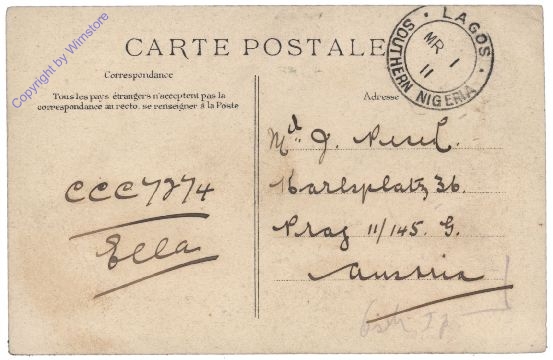 Copyright by Wimstore
CARTE POSTALE
Correspondance
Tous les pays étrangers n'acceptent pas la
correspondance au recto, se renseigner à la Poste
Adresse
LAGOS
SOUTHERN NIGERIA
MR 1
11
J.
Karlsplatz 36.
Prag 11/145. G.
Austria
CCC7274
Ella